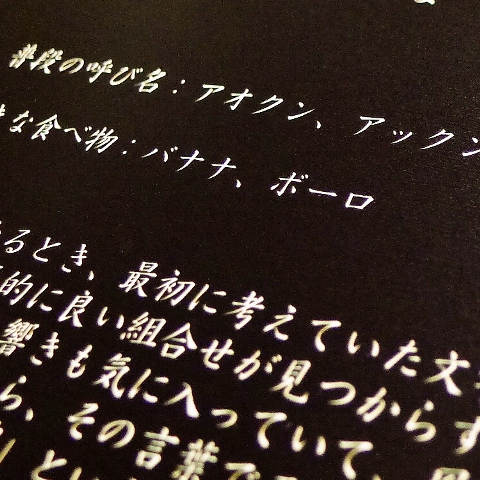 普段の呼び名：アオクン、アックン
な食べ物：バナナ、ボーロ
るとき、最初に考えていた文
的に良い組合せが見つからず
響きも気に入っていて、
ら、その言葉で